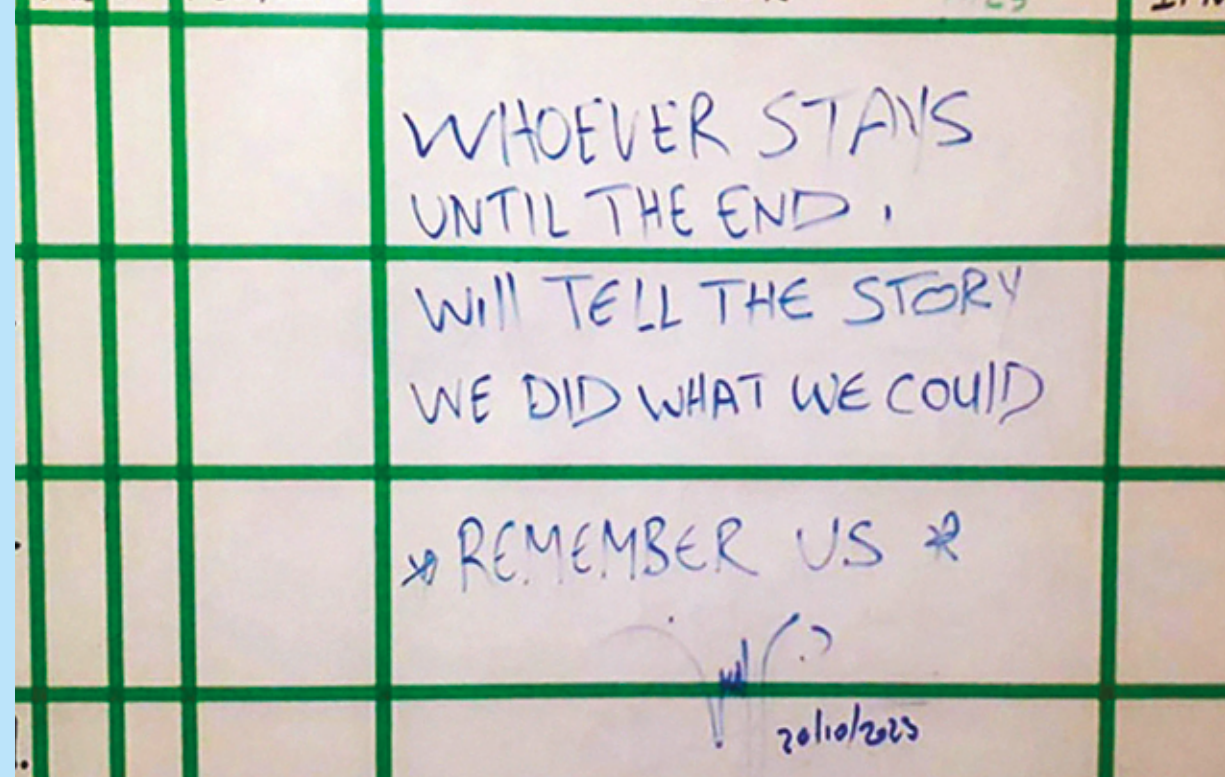 WHOEVER STAYS
UNTIL THE END.
Will TELL THE STORY
WE DID WHAT WE COUlD
*REMEMBER US *
20/10/2023